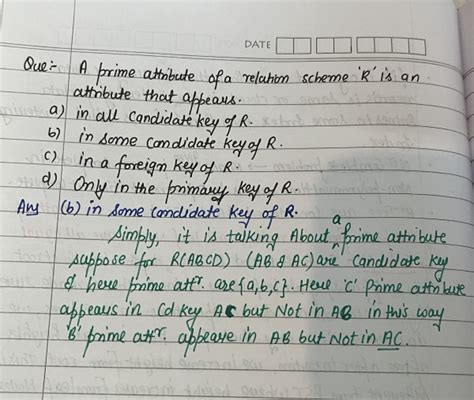 DATE
Que:- A prime attribute of a relation scheme 'R' is an
attribute that appears.
a) in all candidate key of R.
b) in some candidate key of R.
c) in a foreign key of R.
d) Only in the primary key of R.
Ans (b) in some candidate key of R.
Simply, it is talking About a prime attribute
suppose for R(ABCD) (AB & AC) are Candidate key
& here prime attr. are {a,b,c}. Here 'C' prime attribute
appears in Cd key AC but Not in AB in this way
'B' prime attr. appeare in AB but Not in AC.